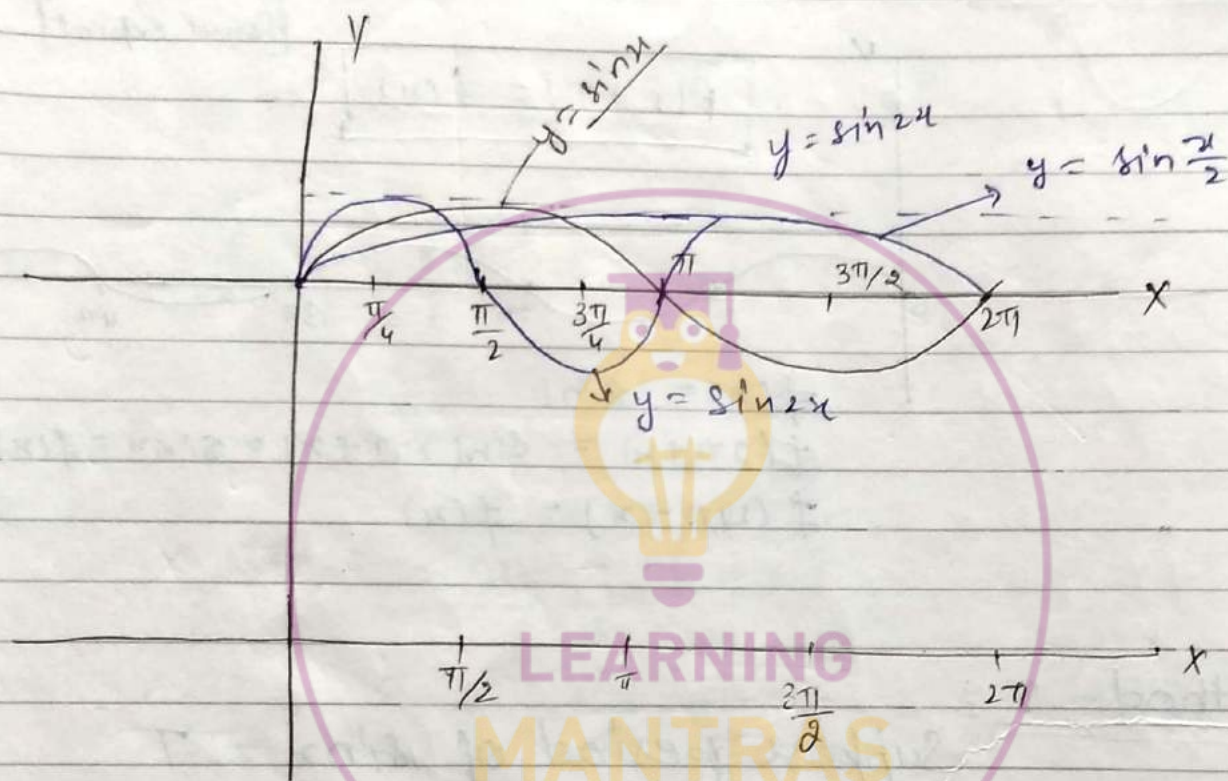 Y
y = sinx
y = sin2x
y = sin x/2
π/4
π/2
3π/4
π
3π/2
2π
X
y = sin2x
π/2
π
3π/2
2π
X
LEARNING
MANTRAS